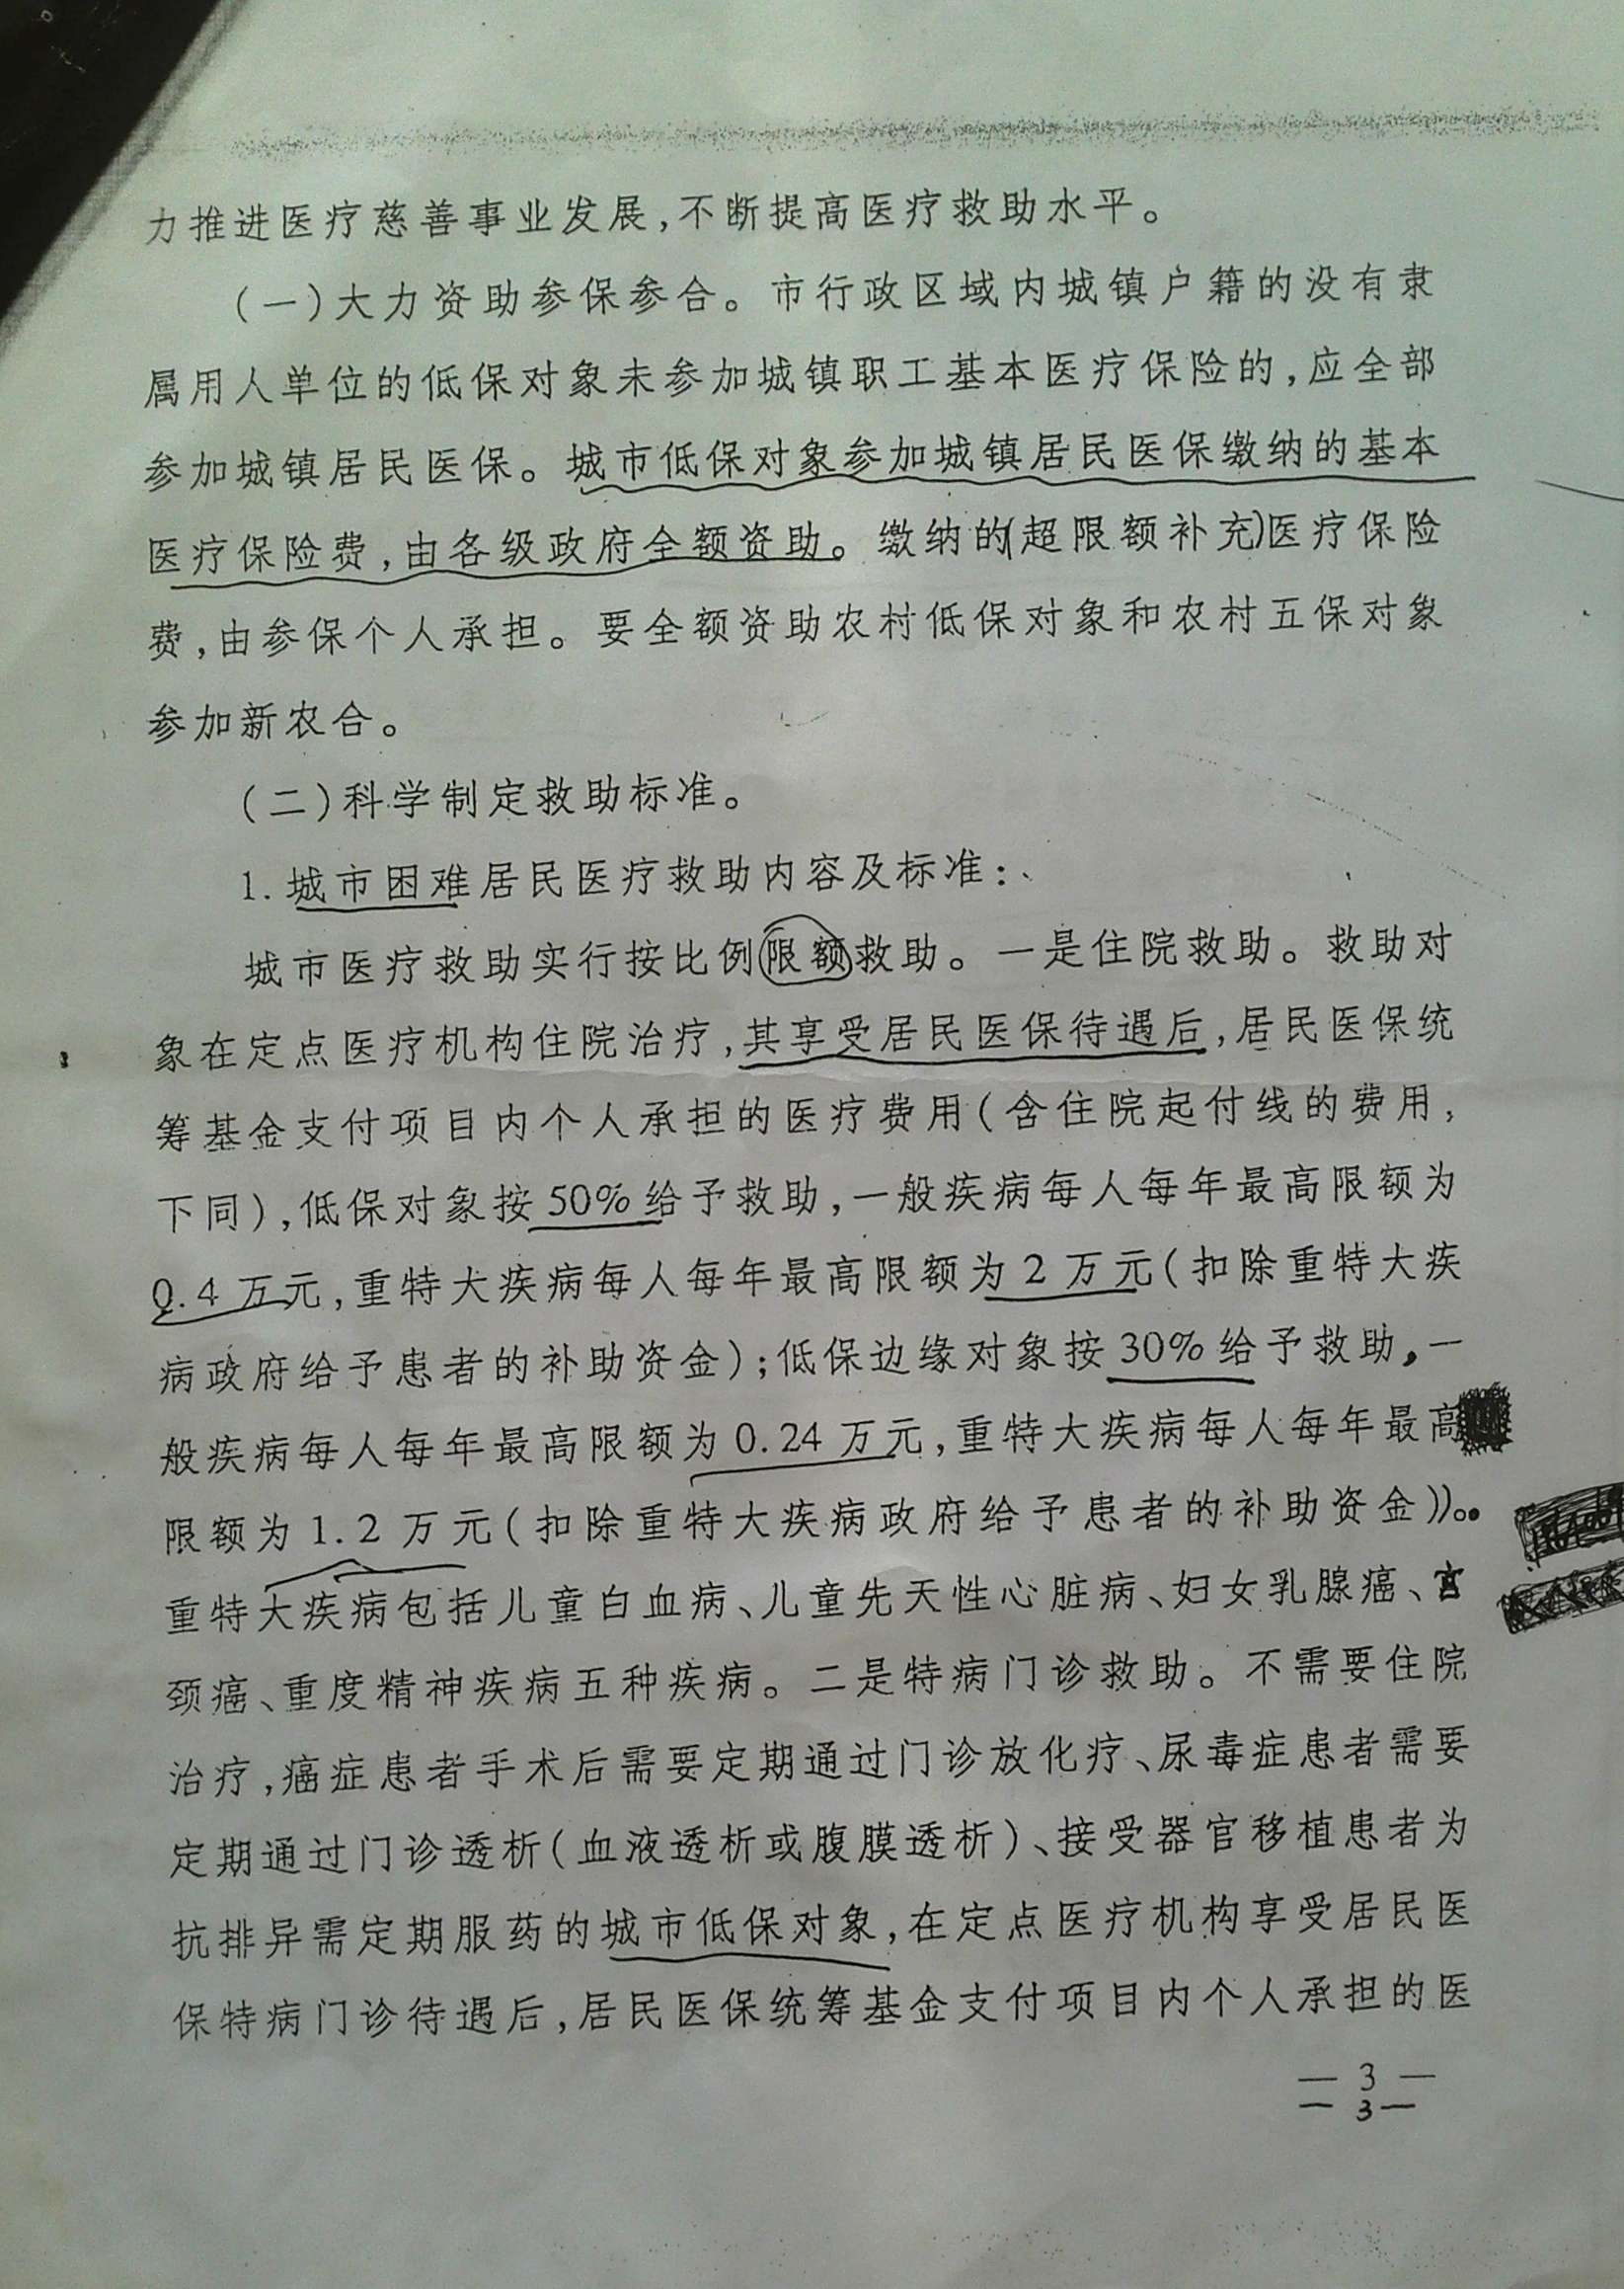 力推进医疗慈善事业发展,不断提高医疗救助水平。
(一)大力资助参保参合。市行政区域内城镇户籍的没有隶
属用人单位的低保对象未参加城镇职工基本医疗保险的,应全部
参加城镇居民医保。城市低保对象参加城镇居民医保缴纳的基本
医疗保险费,由各级政府全额资助。缴纳的(超限额补充)医疗保险
费,由参保个人承担。要全额资助农村低保对象和农村五保对象
参加新农合。
(二)科学制定救助标准。
1.城市困难居民医疗救助内容及标准:
城市医疗救助实行按比例限额救助。一是住院救助。救助对
象在定点医疗机构住院治疗,其享受居民医保待遇后,居民医保统
筹基金支付项目内个人承担的医疗费用(含住院起付线的费用,
下同),低保对象按50%给予救助,一般疾病每人每年最高限额为
0.4万元,重特大疾病每人每年最高限额为2万元(扣除重特大疾
病政府给予患者的补助资金);低保边缘对象按30%给予救助,一
般疾病每人每年最高限额为0.24万元,重特大疾病每人每年最高
限额为1.2万元(扣除重特大疾病政府给予患者的补助资金))。
重特大疾病包括儿童白血病、儿童先天性心脏病、妇女乳腺癌、宫
颈癌、重度精神疾病五种疾病。二是特病门诊救助。不需要住院
治疗,癌症患者手术后需要定期通过门诊放化疗、尿毒症患者需要
定期通过门诊透析(血液透析或腹膜透析)、接受器官移植患者为
抗排异需定期服药的城市低保对象,在定点医疗机构享受居民医
保特病门诊待遇后,居民医保统筹基金支付项目内个人承担的医
— 3 —
— 3 —